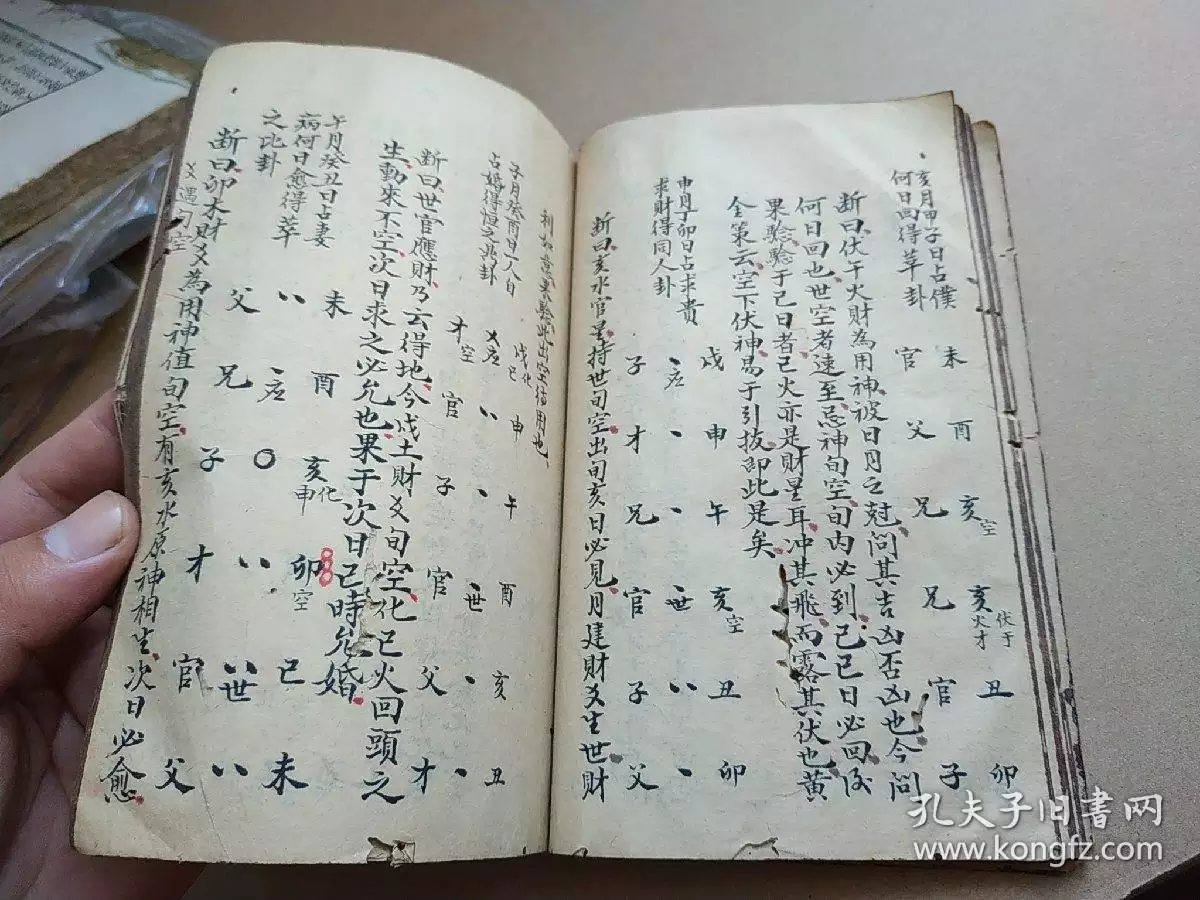 亥月甲子日占僕
何日回得革卦
未 酉 亥空 亥 丑 卯
伏于火才
官 父 兄 兄 官 子
断曰伏于火財為用神被日月之尅问其吉凶否凶也今问
何日回也世空者速至忌神旬空旬内必到己巳日必回后
果驗驗于己日者巳火亦是財星耳冲其飛而露其伏也黄
金策云空下伏神易于引拔即此是矣
申月丁卯日占求貴
求財得同人卦
戌 申 午 亥空 丑 卯
、应 、 、 、世 、、 、
子 才 兄 官 子 父
断曰亥水官星持世旬空出旬亥日必見月建財爻生世財
利如意果驗此出空值用也
子月癸酉日一人自
占婚得恒之兆卦
戌化巳 申 午 酉 亥 丑
乂应 、、 、 、世 、 、
才空 官 子 官 父 才
断曰世官應財乃云得地今戌土財爻旬空化巳火回頭之
生動來不空次日求之必允也果于次日巳時允婚
午月癸丑日占妻
病何日愈得萃
之比卦
未 酉 亥化申 卯空 巳 未
、、 、应 〇 、、 、、世 、、
父 兄 子 才 官 父
断曰卯木財爻為用神值旬空有亥水原神相生次日必愈
爻遇旬空
孔夫子旧書网
www.kongfz.com